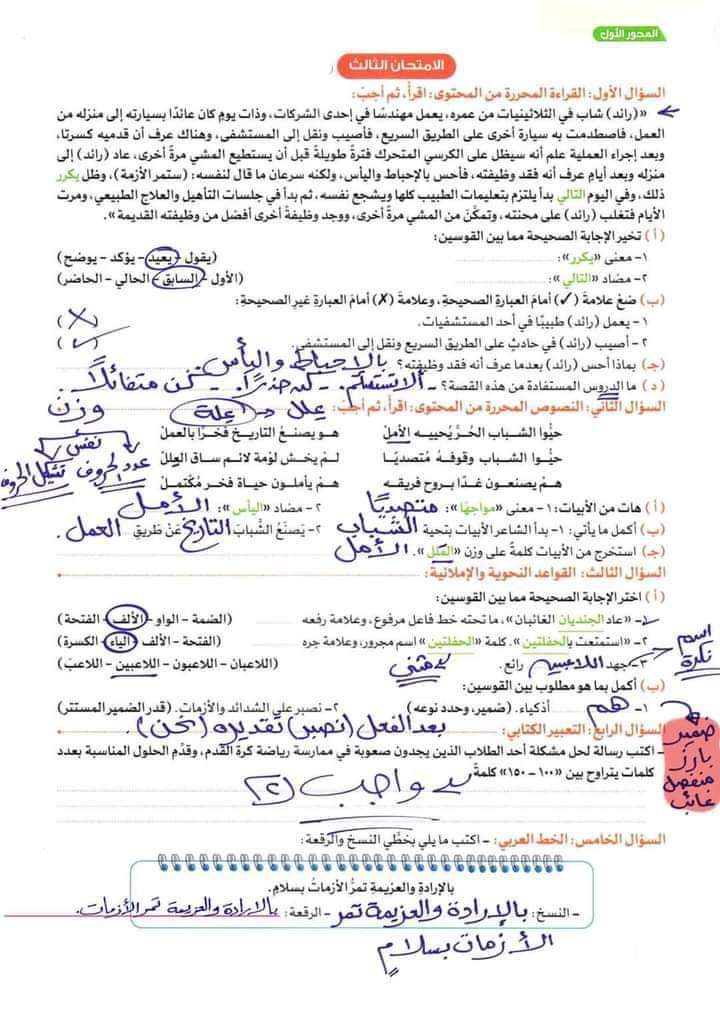 المحور الأول
الامتحان الثالث
السؤال الأول: القراءة المحررة من المحتوى: اقرأ، ثم أجب:
«(رائد) شاب في الثلاثينيات من عمره، يعمل مهندسًا في إحدى الشركات، وذات يوم كان عائدًا بسيارته إلى منزله من
العمل، فاصطدمت به سيارة أخرى على الطريق السريع، فأصيب ونقل إلى المستشفى، وهناك عرف أن قدميه كسرتا،
وبعد إجراء العملية علم أنه سيظل على الكرسي المتحرك فترةً طويلةً قبل أن يستطيع المشي مرةً أخرى، عاد (رائد) إلى
منزله وبعد أيام عرف أنه فقد وظيفته، فأحس بالإحباط واليأس، ولكنه سرعان ما قال لنفسه: (ستمر الأزمة)، وظل يكرر
ذلك، وفي اليوم التالي بدأ يلتزم بتعليمات الطبيب كلها ويشجع نفسه، ثم بدأ في جلسات التأهيل والعلاج الطبيعي، ومرت
الأيام فتغلب (رائد) على محنته، وتمكَّن من المشي مرةً أخرى، ووجد وظيفةً أخرى أفضل من وظيفته القديمة».
(أ) تخير الإجابة الصحيحة مما بين القوسين:
١- معنى «يكرر»: (يقول - يعيد - يؤكد - يوضح)
٢- مضاد «التالي»: (الأول - السابق - الحالي - الحاضر)
(ب) ضع علامةَ (✓) أمامَ العبارةِ الصحيحةِ، وعلامةَ (✗) أمامَ العبارةِ غيرِ الصحيحةِ:
١- يعمل (رائد) طبيبًا في أحد المستشفيات. (✗)
٢- أصيب (رائد) في حادثٍ على الطريق السريع ونقل إلى المستشفى. (✓)
(جـ) بماذا أحس (رائد) بعدما عرف أنه فقد وظيفته؟ بالاحباط واليأس
(د) ما الدروس المستفادة من هذه القصة؟ - ألا يستسلم. - كن حذرًا. - كن متفائلًا.
السؤال الثاني: النصوص المحررة من المحتوى: اقرأ، ثم أجب:
علل ← علة
وزن
نفس
عدد الحروف
تشكيل الحروف
حيُّوا الشبابَ الحُرَّ يُحييهِ الأملْ هو يصنعُ التاريخَ فخرًا بالعملْ
حيُّوا الشبابَ وقوفهُ متصديًا لم يخش لوْمة لائم ساق العِللْ
هم يصنعون غدًا بروح فريقه هم يأملون حياة فخر مُكتملْ
(أ) هات من الأبيات: ١- معنى «مواجهًا»: متصديًا ٢- مضاد «اليأس»: الأمل
(ب) أكمل ما يأتي: ١- بدأ الشاعر الأبيات بتحية الشباب ٢- يَصنَعُ الشَّبابُ التاريخ عَنْ طَريقِ العمل.
(جـ) استخرج من الأبيات كلمةً على وزن «المَلل». الأمل
السؤال الثالث: القواعد النحوية والإملائية:
(أ) اختر الإجابة الصحيحة مما بين القوسين:
١- «عاد الجنديان الغائبان»، ما تحته خط فاعل مرفوع، وعلامة رفعه (الضمة - الواو - الألف - الفتحة)
٢- «استمتعت بالحفلتين». كلمة «الحفلتين» اسم مجرور، وعلامة جره (الفتحة - الألف - الياء - الكسرة)
٣- جهد اللاعبين رائع. (اللاعبان - اللاعبون - اللاعبين - اللاعب)
مثنى
اسم
نكرة
(ب) أكمل بما هو مطلوب بين القوسين:
١- هم أذكياء. (ضمير، وحدد نوعه) ٢- نصبر على الشدائد والأزمات. (قدر الضمير المستتر)
ضمير
بارز
منفصل
غائب
بعد الفعل (نصبر) تقديره (نحن).
السؤال الرابع: التعبير الكتابي:
- اكتب رسالة لحل مشكلة أحد الطلاب الذين يجدون صعوبة في ممارسة رياضة كرة القدم، وقدِّم الحلول المناسبة بعدد
كلمات يتراوح بين «١٠٠ - ١٥٠» كلمةً
واجب (٢)
السؤال الخامس: الخط العربي: - اكتب ما يلي بخطَّي النسخ والرقعة:
بالإرادةِ والعزيمةِ تمرُّ الأزماتُ بسلامٍ.
- النسخ: بالإرادة والعزيمة تمر - الرقعة: بالإرادة والعزيمة تمر الأزمات.
الأزمات بسلامٍ